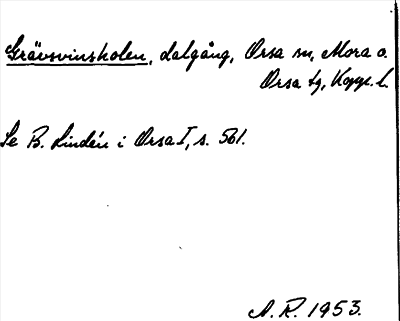 Grävsvinsholen, dalgång, Orsa sn, Mora o.
Orsa tg, Kopp. l.
Se B. Lindén i Orsa I, s. 561.
A. R. 1953.